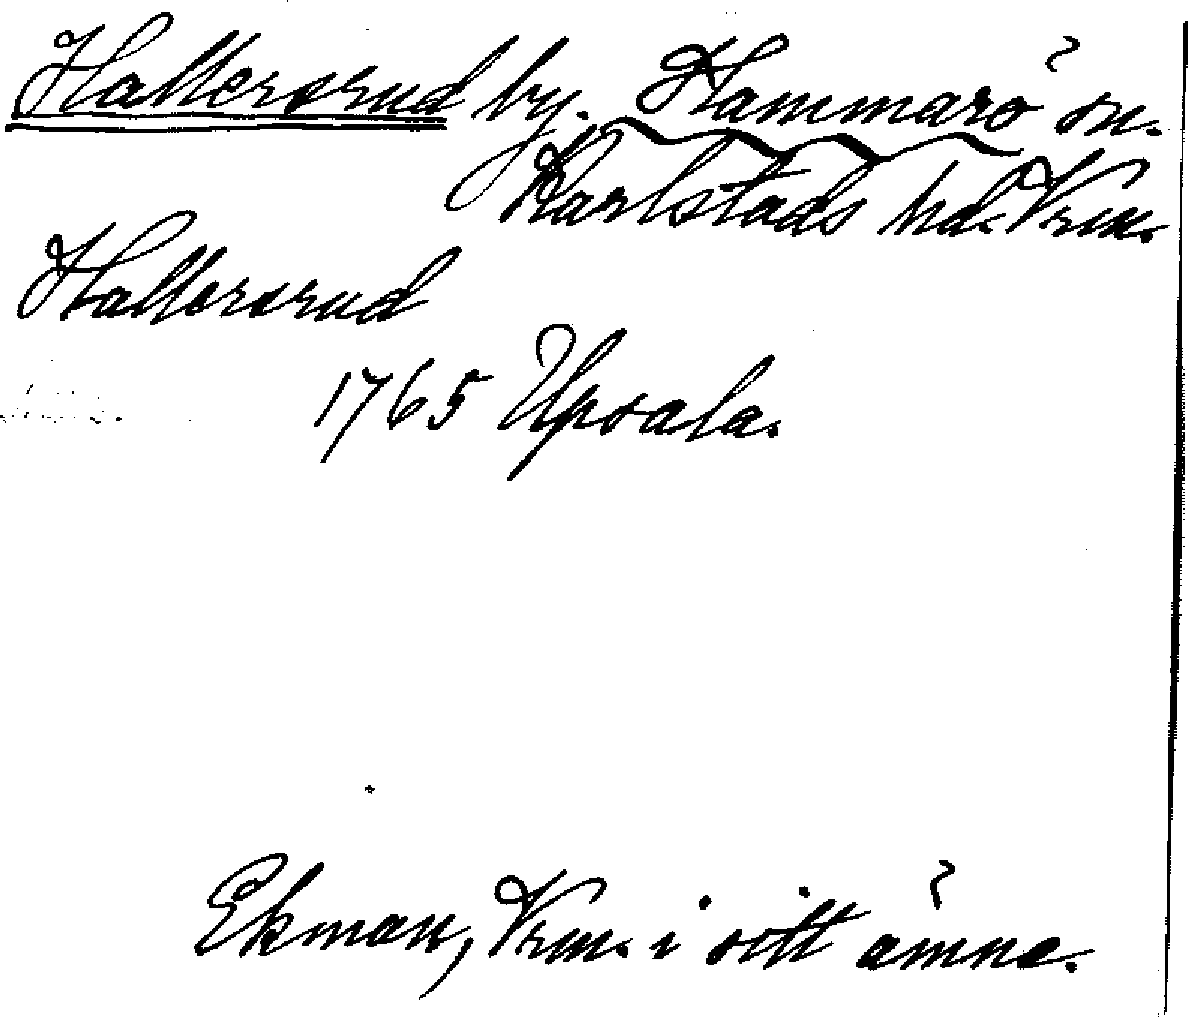 Hallersrud by. Hammarö sn.
Karlstads hd. Vrm.
Hallersrud
1765 Upsala.
Ekman, Vrm. i sitt ämne.